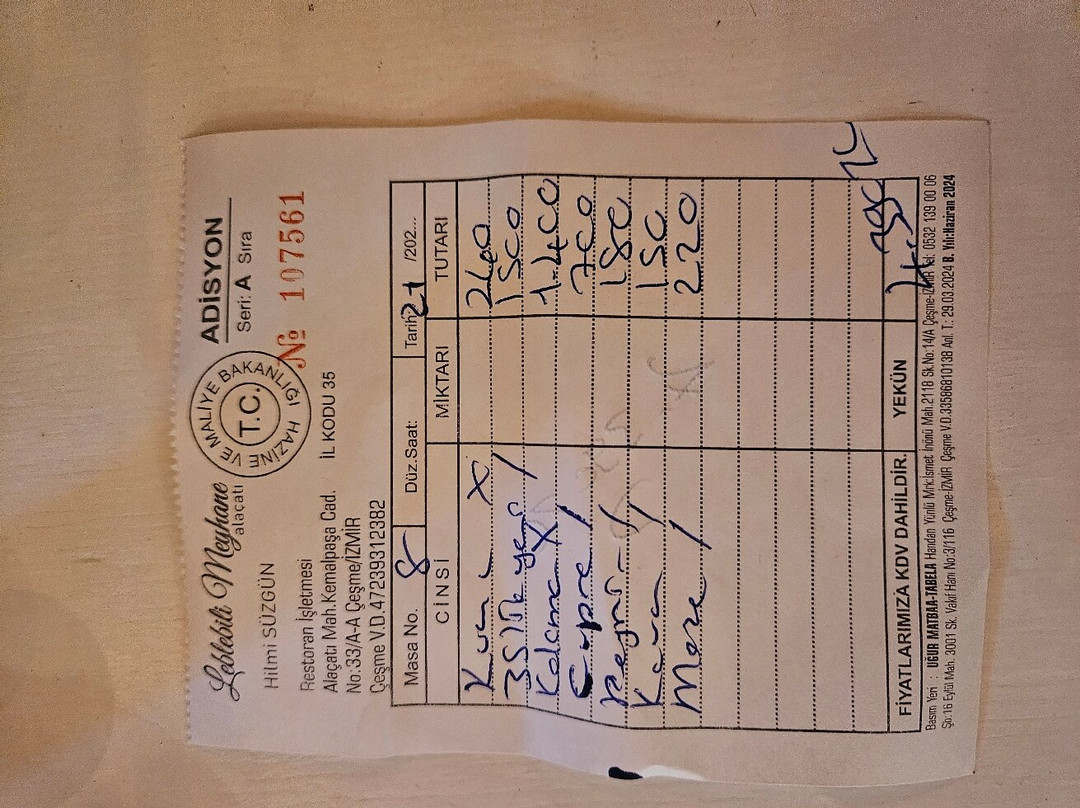 Leblebili Meyhane
alaçatı
Hilmi SÜZGÜN
Restoran İşletmesi
Alaçatı Mah.Kemalpaşa Cad.
No:33/A-A Çeşme/İZMİR
Çeşme V.D.47239312382
İL KODU 35
T.C. HAZİNE VE MALİYE BAKANLIĞI
ADİSYON
Seri: A Sıra
№ 107561
Masa No. 8 Düz.Saat: Tarih 21 /202...
CİNSİ MİKTARI TUTARI
X 240
35 lik / 1500
X 1.400
/ 700
180
Kavun / 150
Meze / 220
FİYATLARIMIZA KDV DAHİLDİR. YEKÜN 4.390 TL
Basım Yeri : UĞUR MATBAA-TABELA Handan Yünlü Mrk:İsmet İnönü Mah.2118 Sk.No:14/A Çeşme-İZMİR Tel: 0532 139 00 06
Şb:16 Eylül Mah. 3001 Sk. Vakıf Hanı No:3/116 Çeşme-İZMİR Çeşme V.D.33586810138 Anl. T.: 29.03.2024 B. Yılı:Haziran 2024